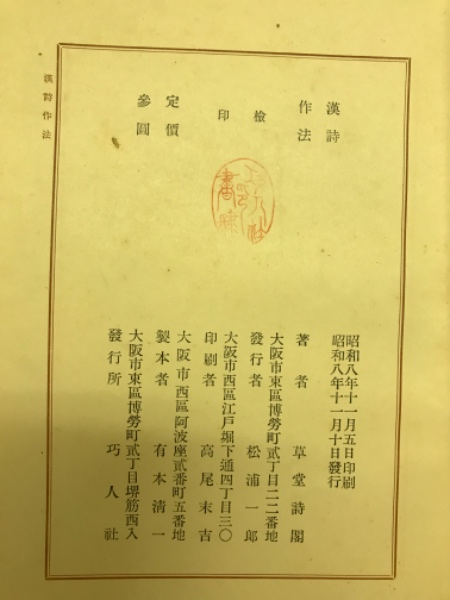 漢詩作法
漢詩
作法
檢
印
定價
參圓
昭和八年十一月五日印刷
昭和八年十一月十日發行
著者 草堂詩閣
大阪市東區博勞町貳丁目二二番地
發行者 松浦一郎
大阪市西區江戸堀下通四丁目三〇
印刷者 高尾末吉
大阪市西區阿波座貳番町五番地
製本者 有本清一
大阪市東區博勞町貳丁目堺筋西入
發行所 巧人社